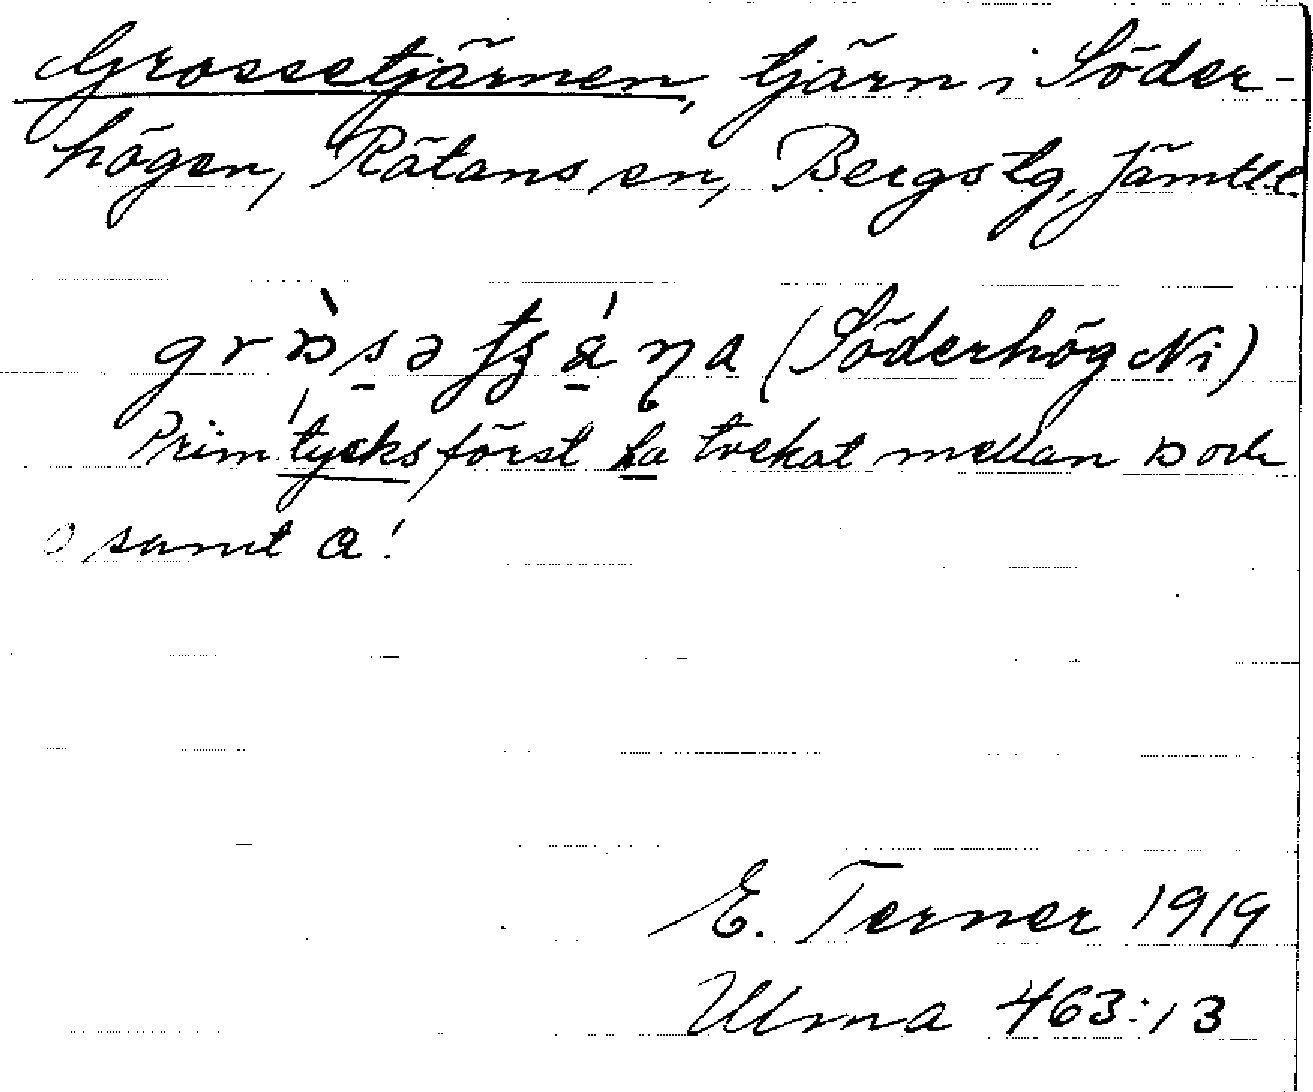 Grossetjärnen, tjärn i Söder-
högen, Rätans sn, Bergs tg, Jämtl.l.
(Söderhög Ni)
Prim. tycks först ha tvekat mellan ɒ och
o samt a!
E. Terner 1919
Ulma 463:13